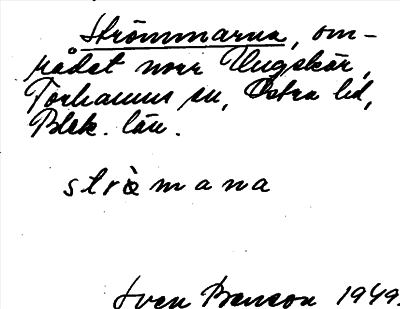 Strömmarna, om-
rådet norr Ungskär,
Torhamns sn, Östra hd,
Blek. län.
strömana
Sven Benson 1949.